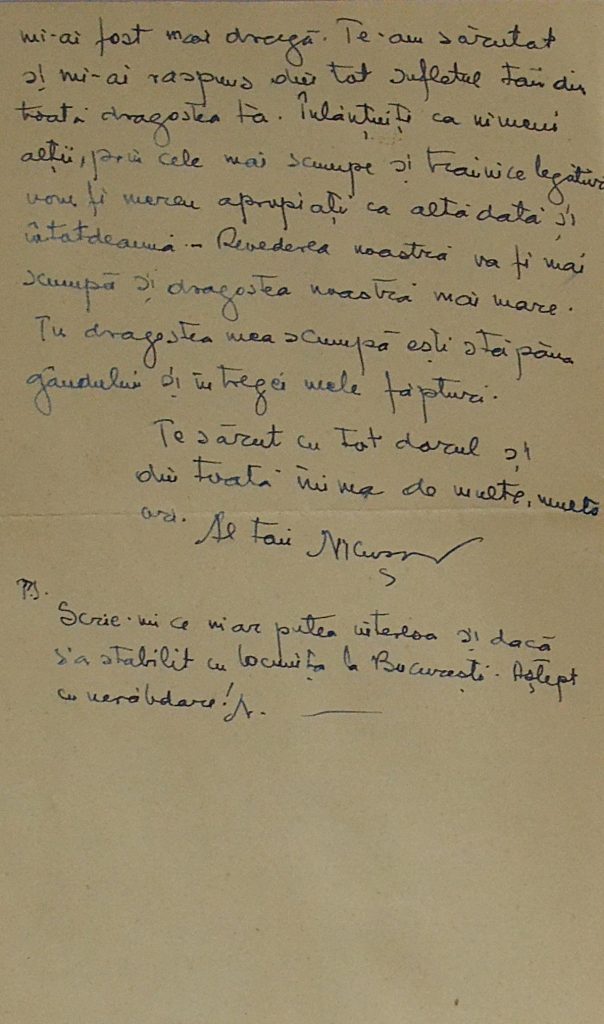 mi-ai fost mai dragă. Te-am sărutat
și mi-ai raspuns din tot sufletul tău din
toată dragostea ta. Înlănțuiți ca nimeni
alții, prin cele mai scumpe și trainice legături
vom fi mereu apropiați ca altă dată și
întotdeauna – Revederea noastră va fi mai
scumpă și dragostea noastră mai mare.
Tu dragostea mea scumpă ești stăpâna
gândului și întregei mele făpturi.
Te sărut cu tot dorul și
din toată inima de multe, multe
ori. Al tău
P.S.
Scrie-mi ce m'ar putea interesa și dacă
s'a stabilit cu locuința la București. Aștept
cu nerăbdare! N.